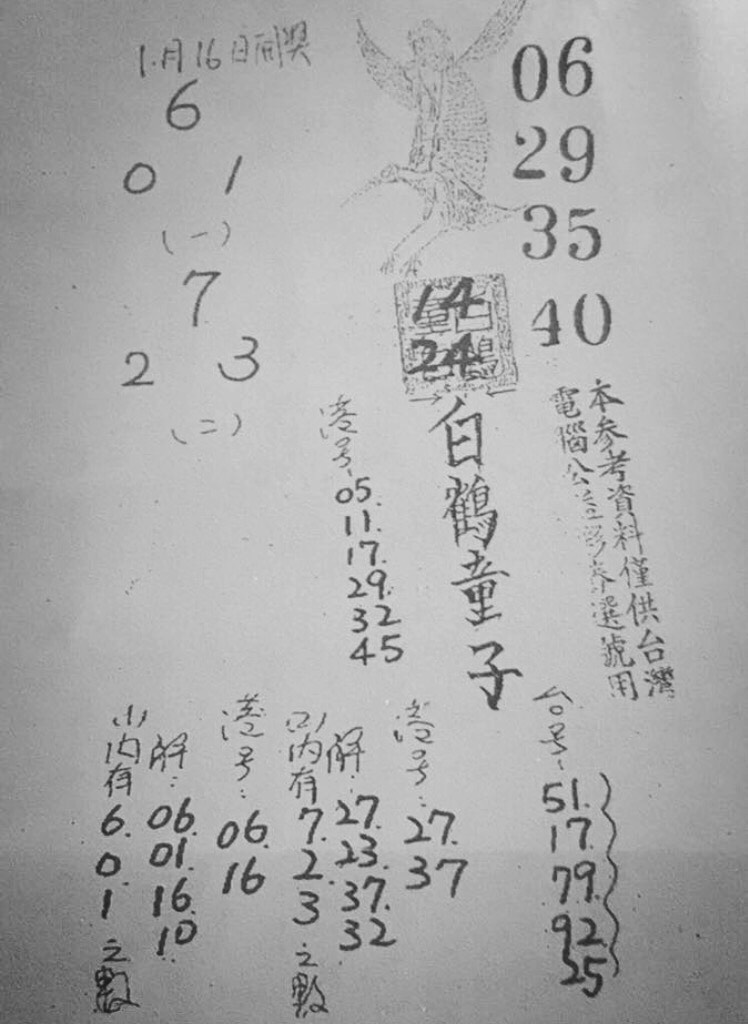 1月16日同獎
6
0 1
(一)
7
2 3
(二)
06
29
35
40
14
24
白鶴童子
本参考資料僅供台灣
電腦公益彩券選號用
港号:
05.
11.
17.
29.
32
45
(1)内有
6.
0.
1
之數
解:
06.
01.
16.
10
港号:
06.
16
(2)内有
7.
2.
3
之數
解:
27.
23.
37.
32
港号:
27.
37
台号:
51.
17.
79.
92.
25